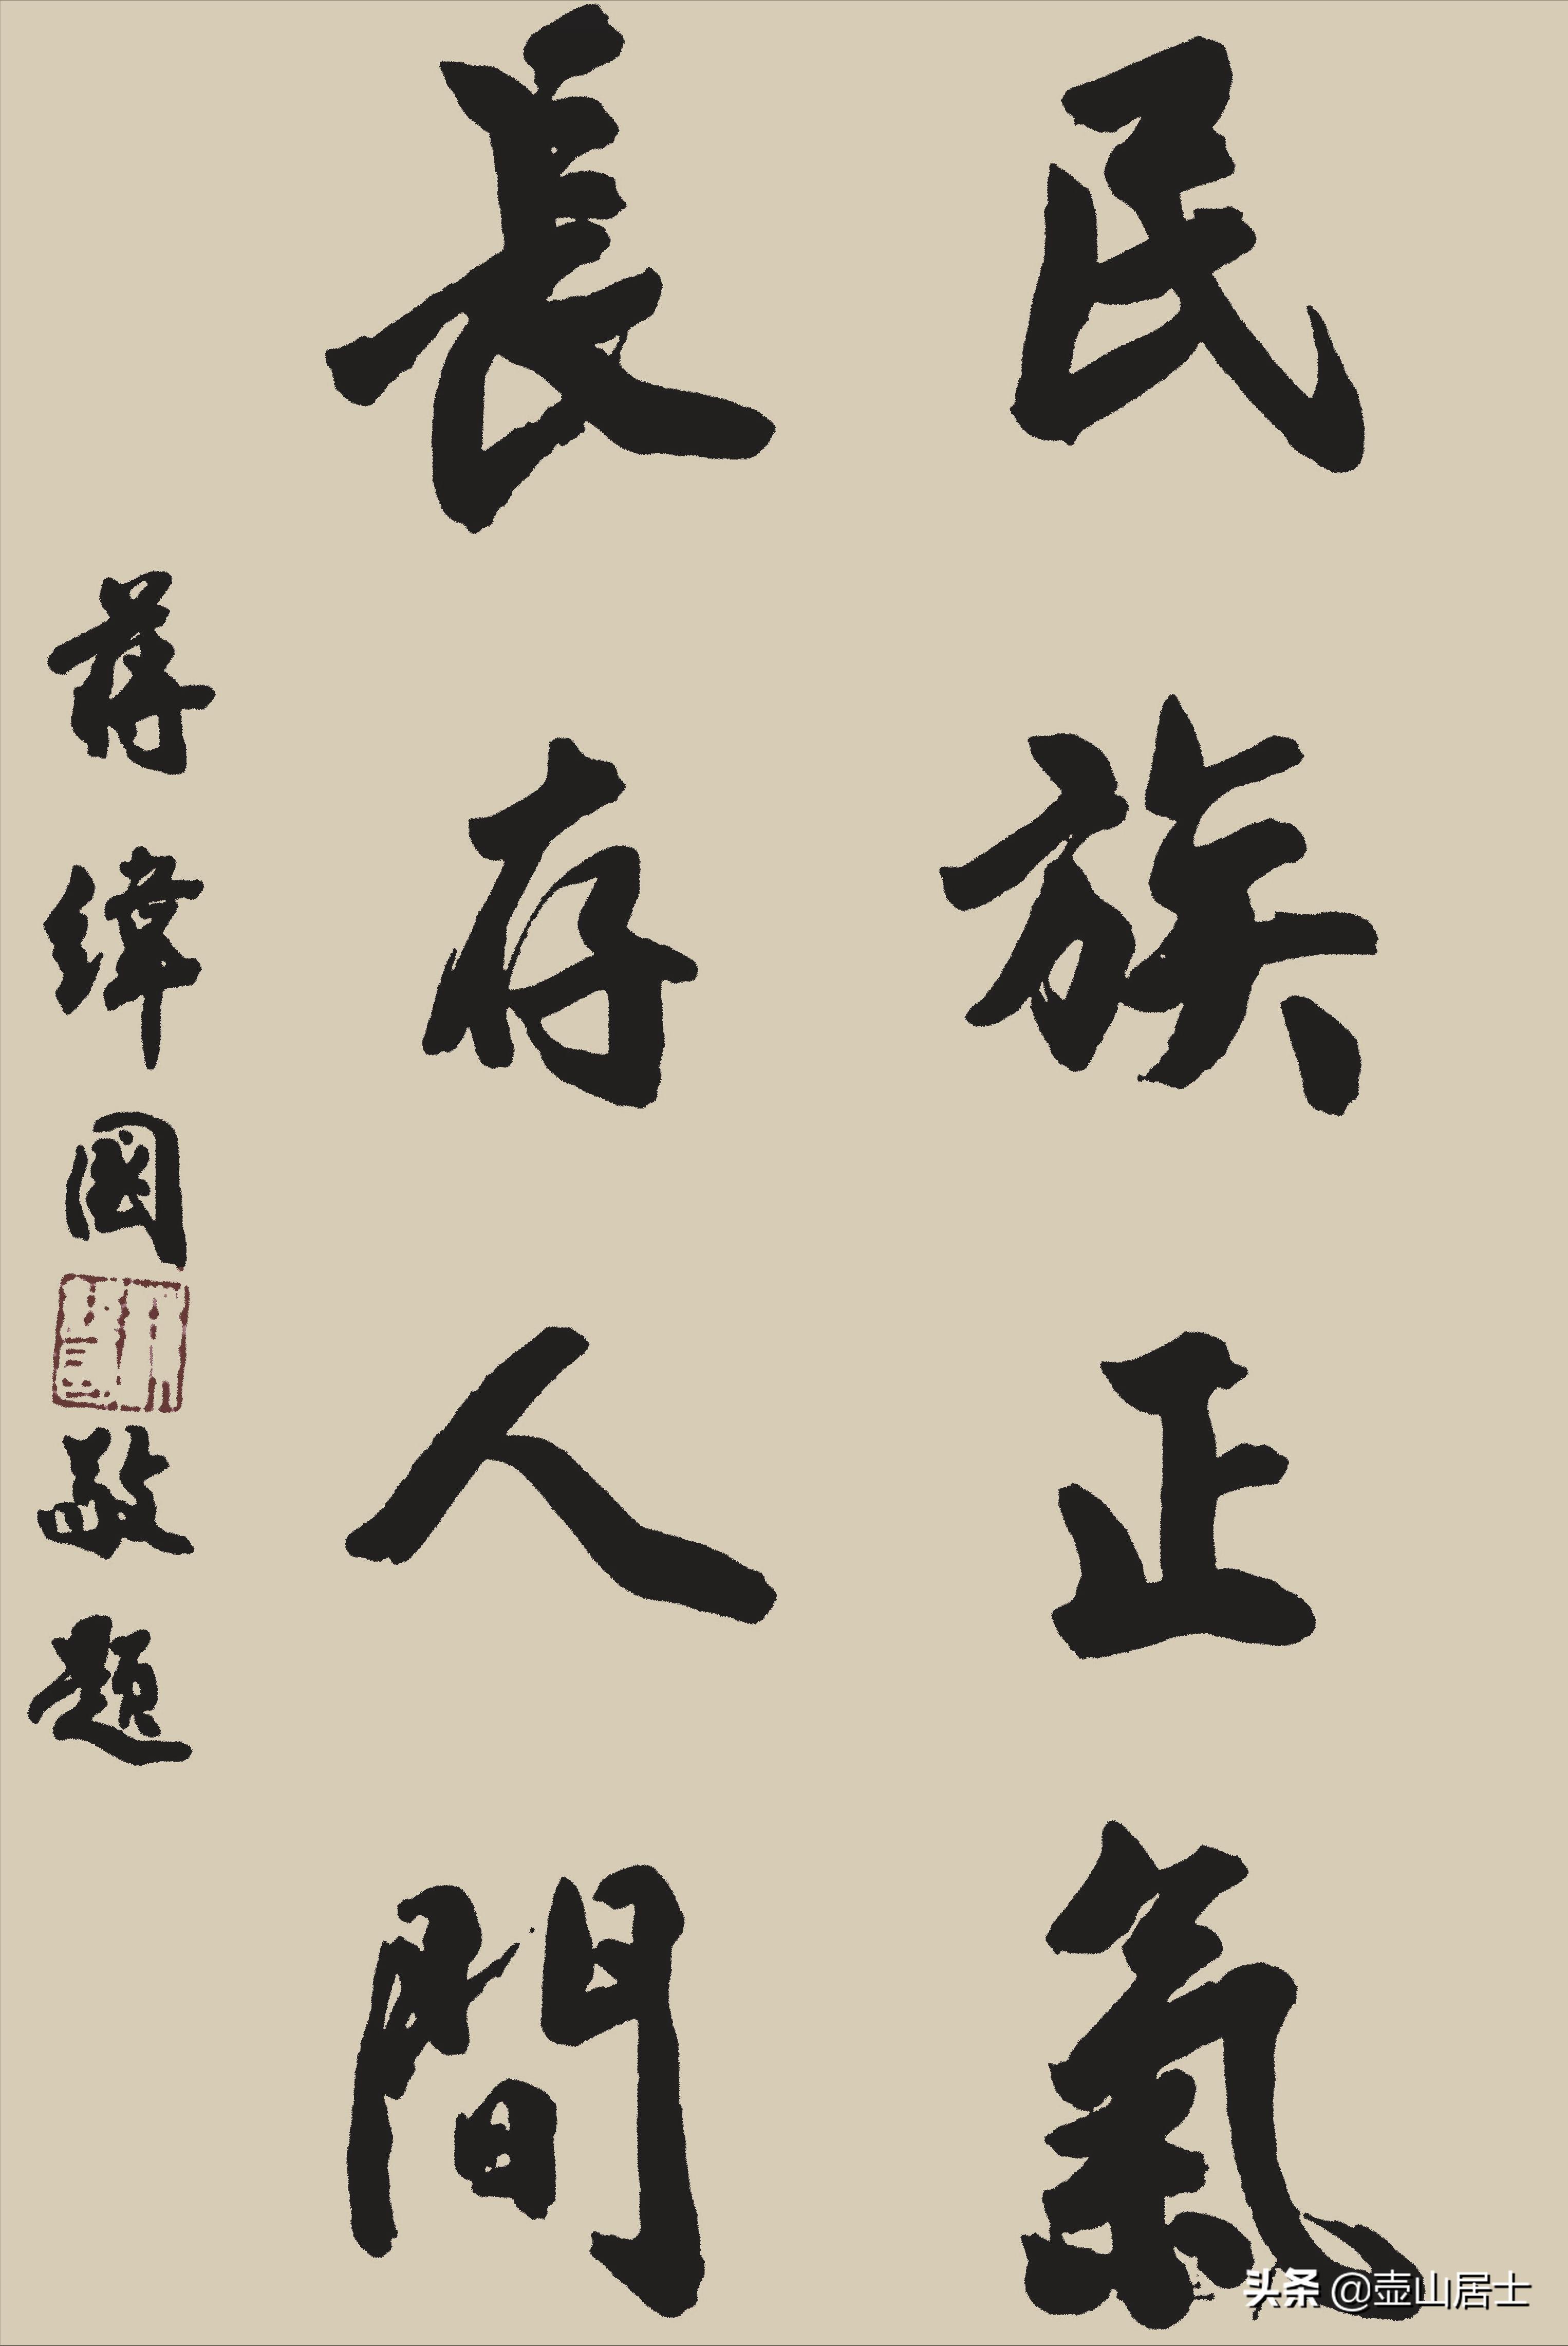 民族正氣
長存人間
蔣緯國敬題
头条 @壶山居士